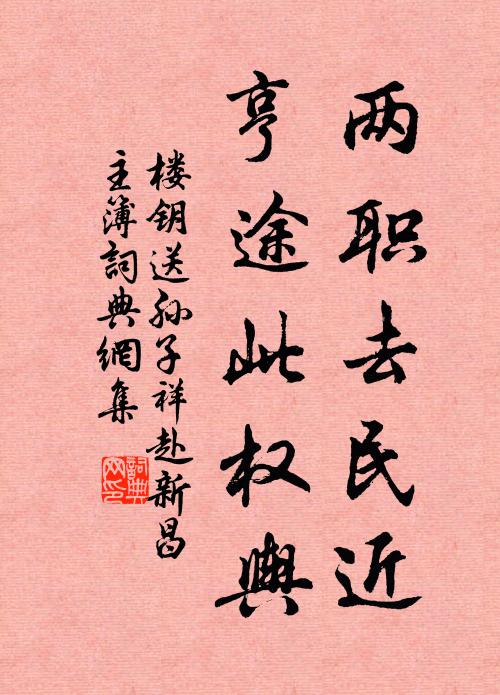 两职去民近
亨途此权舆
楼钥送孙子祥赴新昌
主簿词典網集
詞典网印